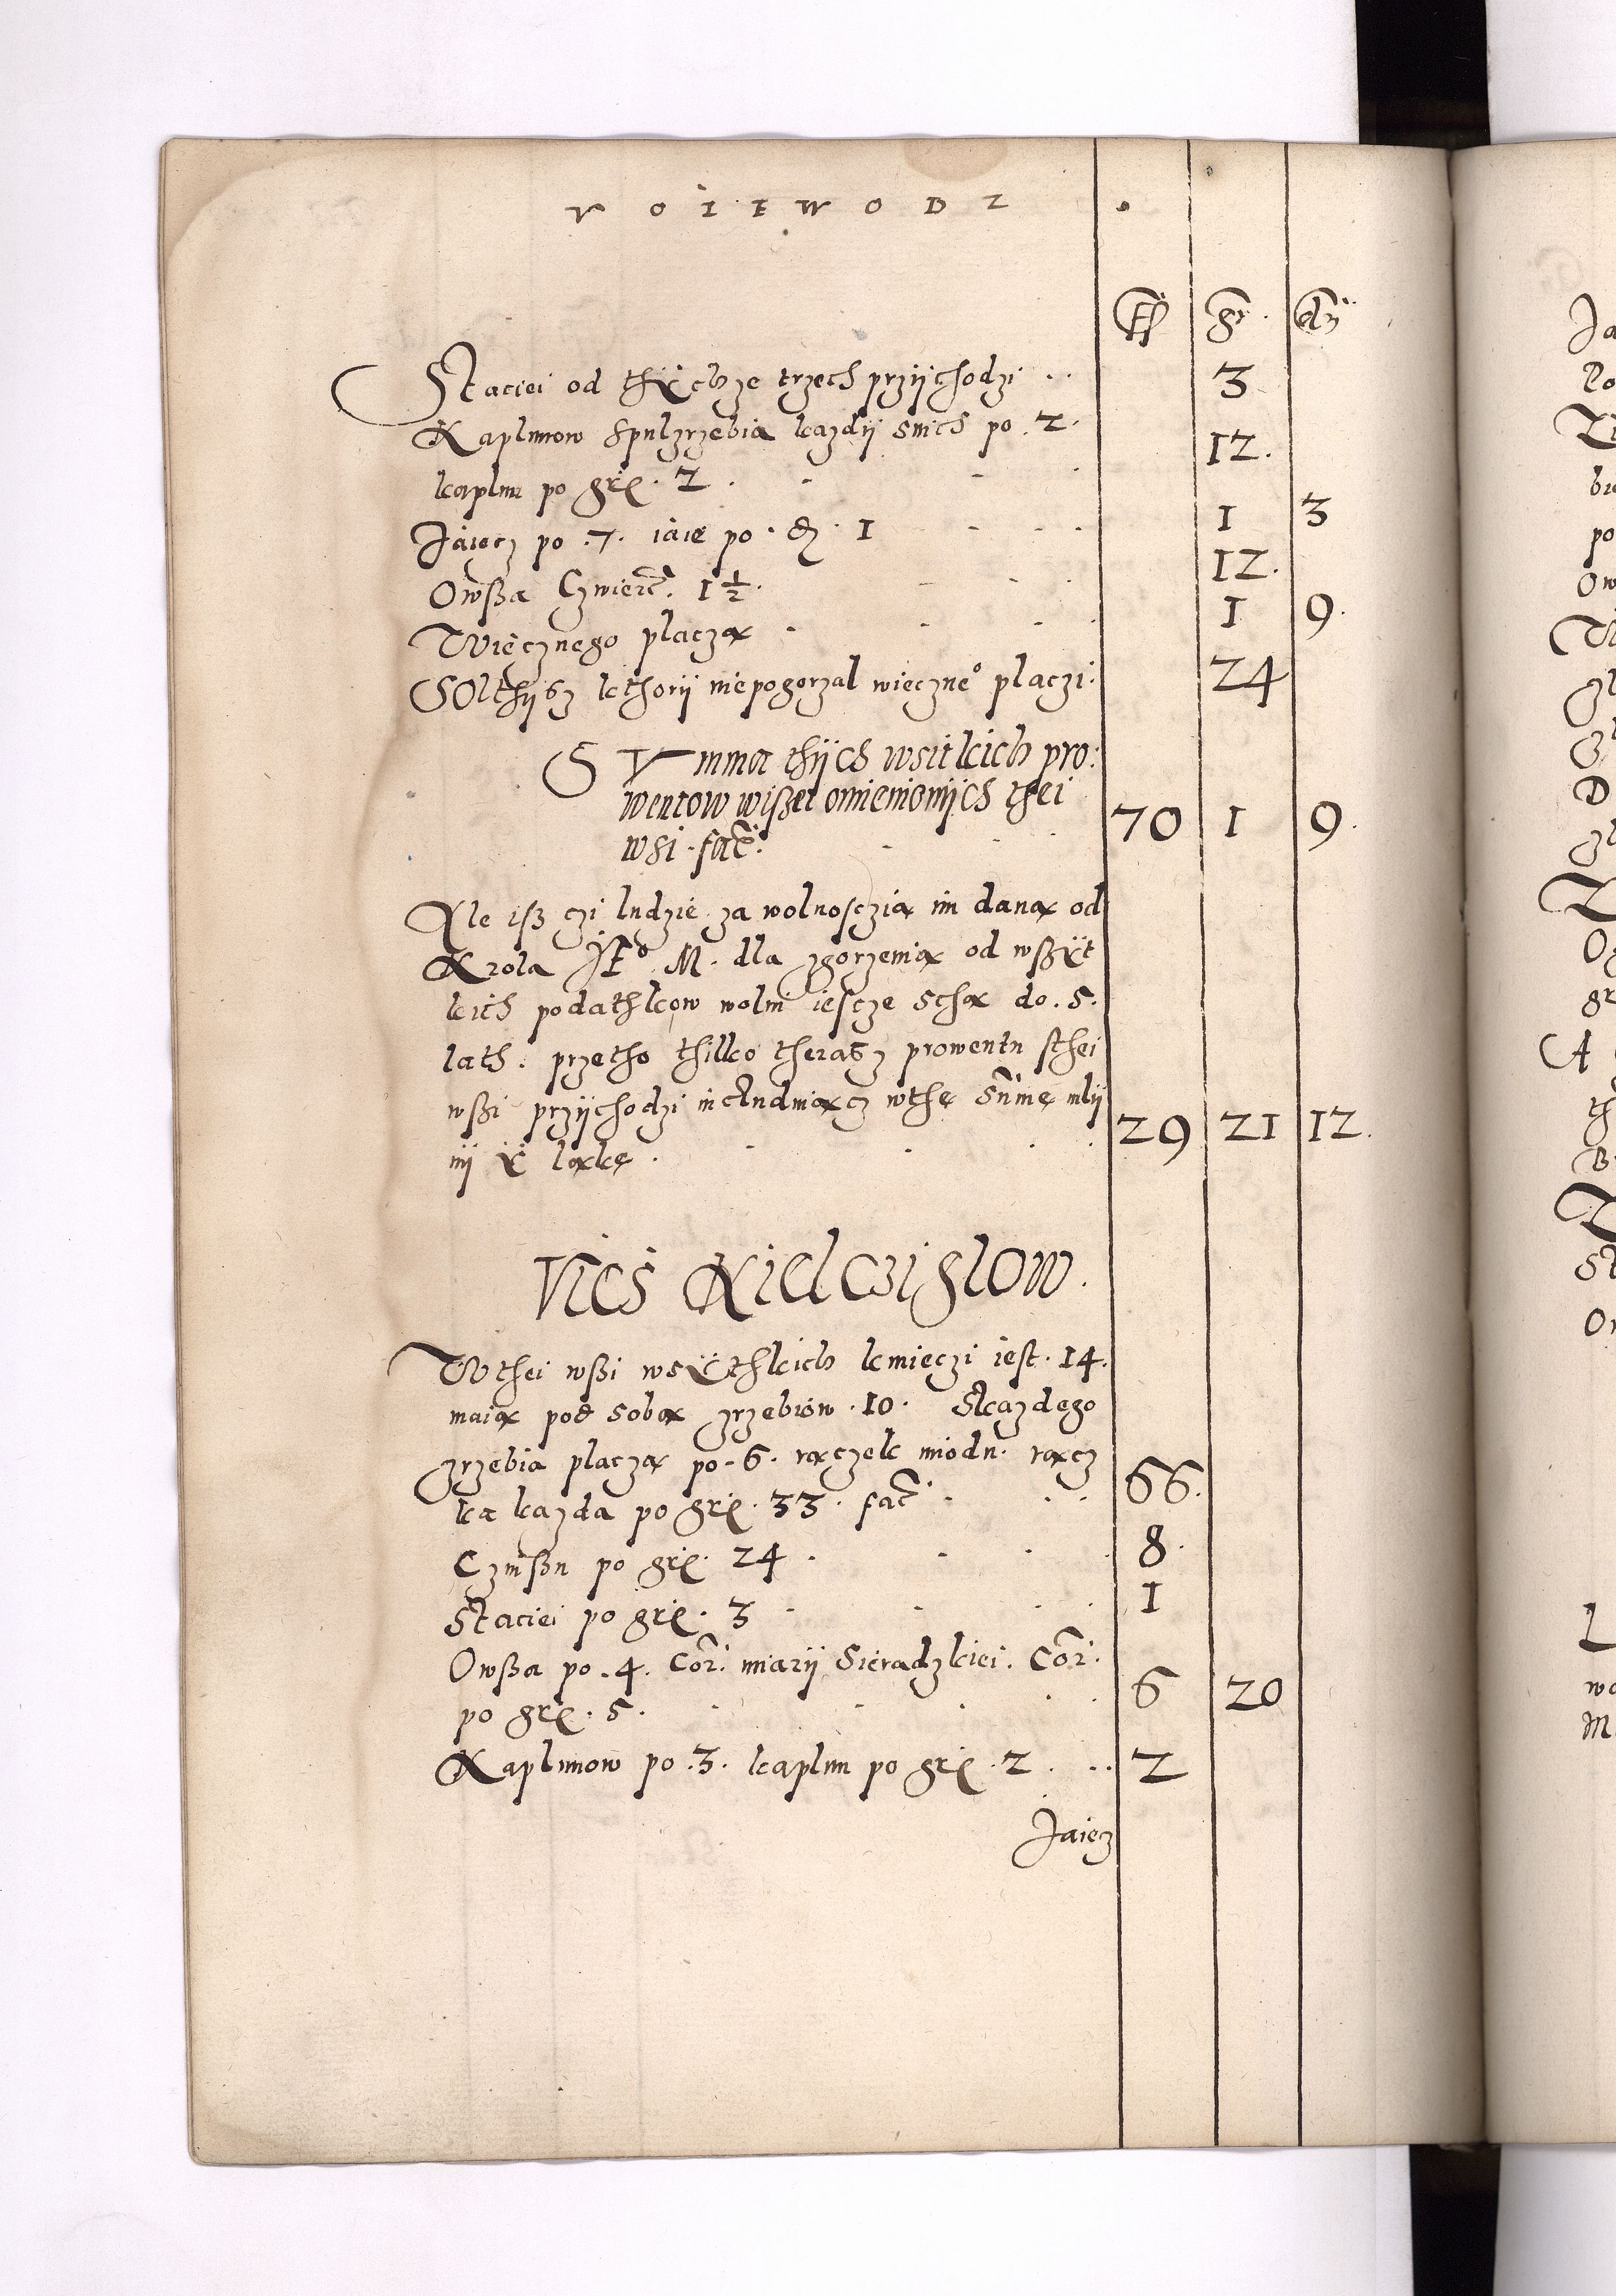 VOIEWODZ .
fl gr. dn.
Staciei od thÿchze trzech przÿchodzi . . 3
Kaplunow spulzrzebia kazdÿ snich po . 2 .
kaplun po grꝭ . 2 . 12 .
Jaiecz po . 7 . iaie po . d . 1 1 3
Owßa Czwierc. 1 ½ . 12 .
Wiecznego placzą 1 9 .
SOlthÿsz kthorÿ niepogorzal wieczne° placzi . 24
SVmma thÿch wsitkich pro:
wentow wißei omienionÿch thei
wsi . fac. 70 1 9 .
Ale isz czi ludzie za wolnosczią im daną od
Krola JE° M. dla zgorzenia od wßÿt
kich podathkow wolni iescze schą do . 5 .
lath . przetho thilko therasz prowentu sthei
wßi przÿchodzi includuiącz wthę summę mlÿ
nÿ ÿ łąkę . 29 21 12 .
Vies Kielcziglow .
Wthei wßi wsÿthkich kmieczi iest . 14 .
maią pod sobą zrzebiow . 10 . Skazdego
zrzebia placzą po . 6 . rączek miodu . rącz
ka kazda po grꝭ . 33 . fac. 66 .
Czinßu po grꝭ . 24 . 8 .
Staciei po grꝭ . 3 1
Owßa po . 4 . Cor. miarÿ Sieradzkiei . Cor.
po grꝭ . 5 . 6 20
Kaplunow po . 3 . kaplun po grꝭ . 2 . . . 2
Jaiecz